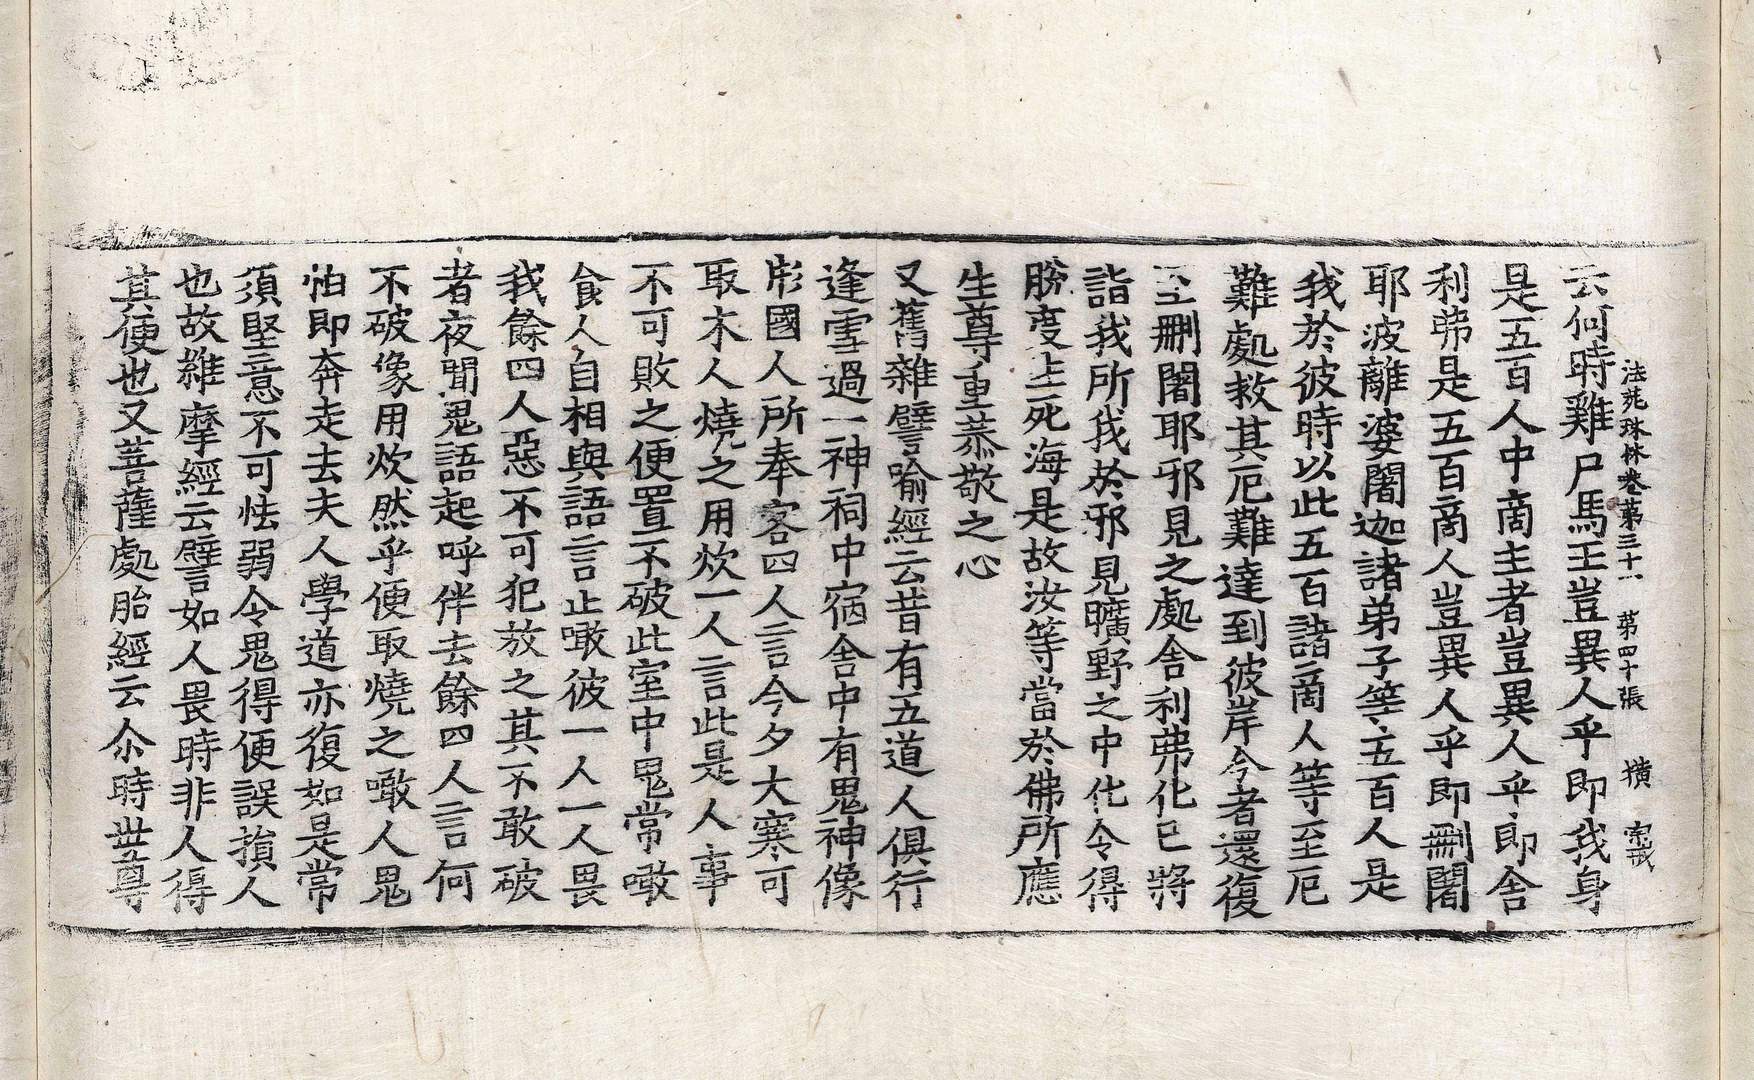 法苑珠林卷第三十一 第四十張 横 宗戒
云何時雞尸馬王豈異人乎即我身
是五百人中啇主者豈異人乎即舍
利弗是五百啇人豈異人乎即刪闍
耶波離婆闍迦諸弟子等五百人是
我於彼時以此五百諸啇人等至厄
難處救其厄難達到彼岸今者還復
至刪闍耶邪見之處舍利弗化已將
詣我所我於邪見曠野之中化令得
勝度生死海是故汝等當於佛所應
生尊重恭敬之心
又舊雜譬喻經云昔有五道人俱行
逢雪過一神祠中宿舍中有鬼神像
彫國人所奉客四人言今夕大寒可
取木人燒之用炊一人言此是人事
不可敗之便置不破此室中鬼常噉
食人自相與語言止噉彼一人一人畏
我餘四人惡不可犯放之其不敢破
者夜聞鬼語起呼伴去餘四人言何
不破像用炊然乎便取燒之噉人鬼
怕即奔走去夫人學道亦復如是常
須堅意不可怯弱令鬼得便誤損人
也故維摩經云譬如人畏時非人得
其便也又菩薩處胎經云尒時世尊